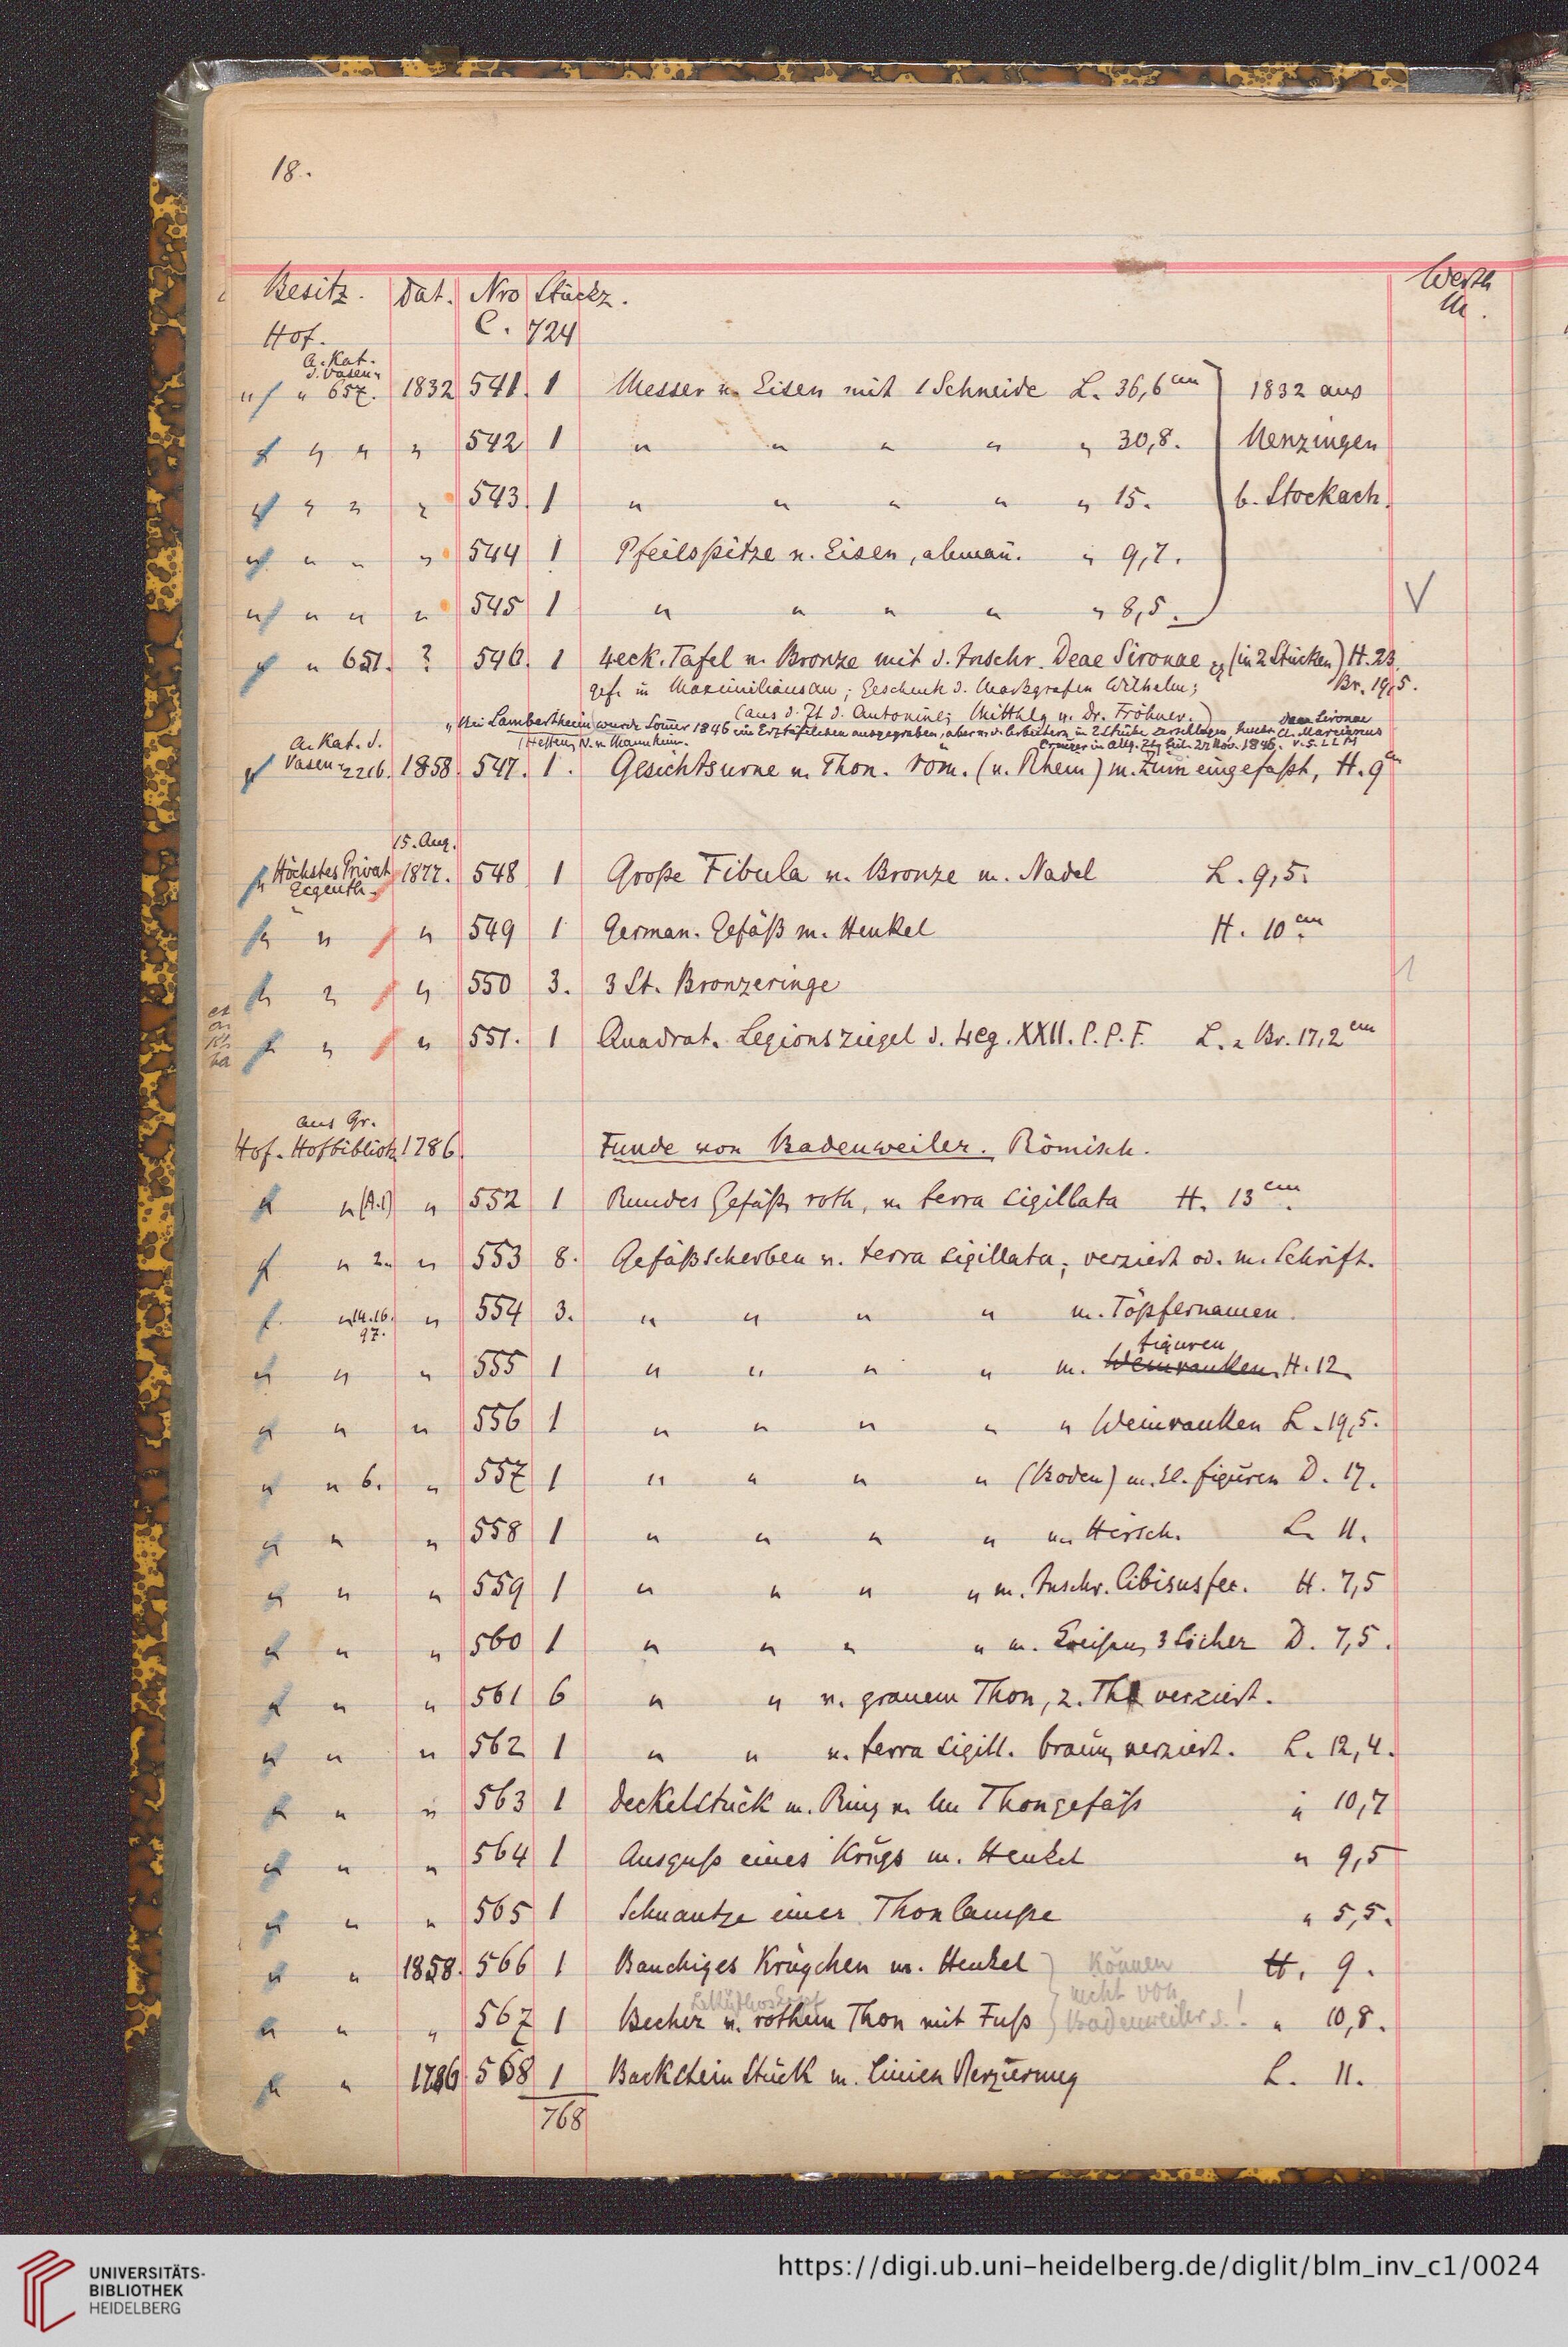 18.
Besitz. Dat. Nro Stückz. Werth
Hof. C. 724 M.
A. Kat.
d. Vasen
" " 657. 1832 541. 1 Messer v. Eisen mit 1 Schneide L. 36,6 cm 1832 aus
" " " " 542 1 " " " " " 30,8. Menzingen
" " " " 543. 1 " " " " " 15. b. Stockach.
" " " " 544 1 Pfeilspitze v. Eisen, aleman̄. " 9,7.
" " " " 545 1 " " " " " 8,5. V
" " 651. ? 546. 1 4eck. Tafel v. Bronze mit d. Inschr. Deae Sironae (in 2 Stücken) H. 23.
gef. in Maximiliansau; Geschenk d. Markgrafen Wilhelm; Br. 19,5.
(aus d. Zt d. Antonine; Mitthlg v. Dr. Fröhner.)
"Bei Lambertheim wurde Som̄er 1846 ein Erztäfelchen ausgegraben, aber v. d. Arbeitern in 2 Stücke zerschlagen, Deae Sironae Cl. Marcianus
(Hessen, N. v. Mannheim. Creuzer in Allg. Ztg Beil. 22 Nov. 1846. V. S. L. L. M
A. Kat. d.
" Vasen 2216. 1858. 547. 1. Gesichtsurne v. Thon. röm. (v. Rhein) m. Zinn eingefaßt, H. 9 cm
15. Aug.
" Höchstes Privat 1877. 548 1 Große Fibula v. Bronze m. Nadel L. 9,5.
Eigenth.
" " " 549 1 German. Gefäß m. Henkel H. 10 cm.
" " " 550 3. 3 St. Bronzeringe 1
" " " 551. 1 Quadrat. Legionsziegel d. Leg. XXII. P. P. F. L. u Br. 17,2 cm
aus Gr.
Hof. Hofbiblioth 1786. Funde von Badenweiler. Römisch.
" " (A.1) " 552 1 Rundes Gefäß, roth, v. terra sigillata H. 13 cm.
" " 2. " 553 8. Gefäßscherben v. terra sigillata, verziert od. m. Schrift.
" " 14.16. " 554 3. " " " " m. Töpfernamen.
97.
figuren
" " " 555 1 " " " " m. Weinranken. H. 12.
" " " 556 1 " " " " " Weinranken L. 19,5.
" " 6. " 557 1 " " " " (Boden) m. kl. figuren D. 17.
" " " 558 1 " " " " m. Hirsch. L. 11.
" " " 559 1 " " " " m. Inschr. Cibisus fec. H. 7,5
" " " 560 1 " " " " m. 3 Löcher D. 7,5.
" " " 561 6 " " v. grauem Thon, z. Thl verziert.
" " " 562 1 " " v. terra sigill. braun, verziert. L. 12,4.
" " " 563 1 Deckelstück m. Ring v. Thongefäß " 10,7
" " " 564 1 Ausguß eines Krugs m. Henkel " 9,5
" " " 565 1 Schnautze einer Thonlampe " 5,5.
" " 1858. 566 1 Bauchiges Krügchen m. Henkel können H. 9.
nicht von
" " " 567 1 Becher v. rothem Thon mit Fuß Badenweiler s.! " 10,8.
" " 1786. 568 1 Backstein Stück m. Linien Verzierung L. 11.
768
UNIVERSITÄTS-
BIBLIOTHEK
HEIDELBERG
https://digi.ub.uni-heidelberg.de/diglit/blm_inv_c1/0024